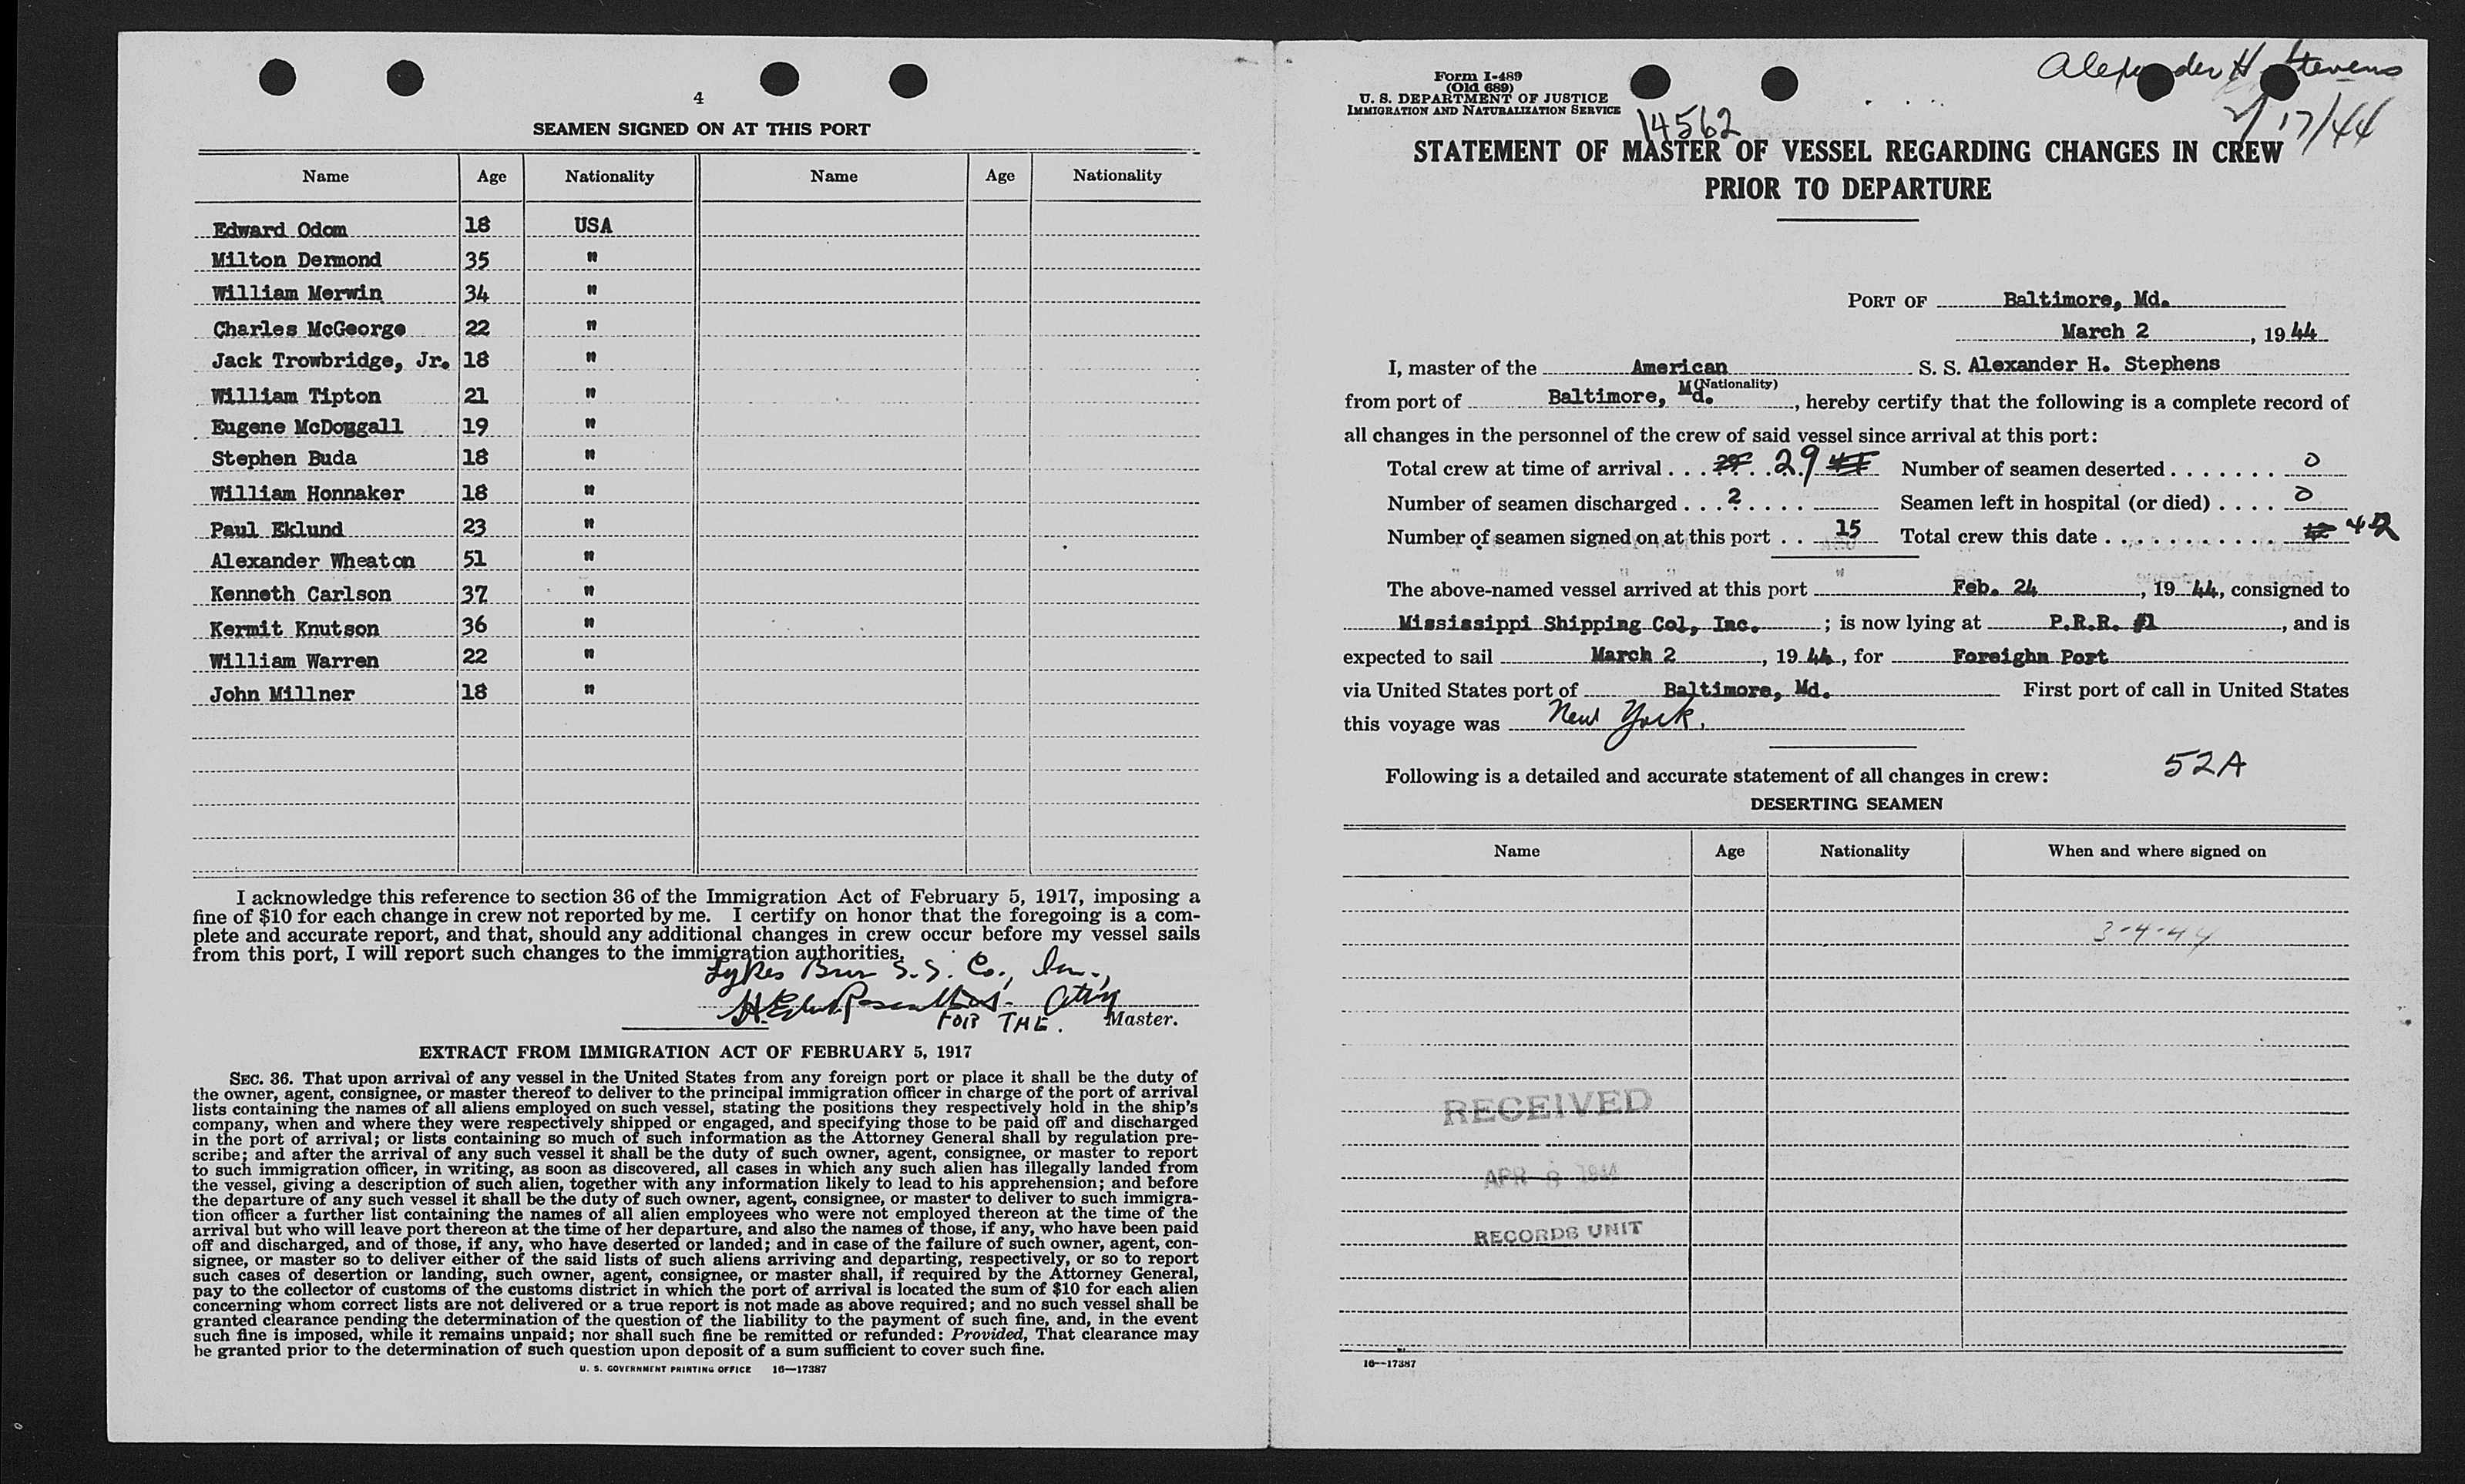 4
SEAMEN SIGNED ON AT THIS PORT
Name Age Nationality Name Age Nationality
Edward Odom 18 USA
Milton Dermond 35 "
William Merwin 34 "
Charles McGeorge 22 "
Jack Trowbridge, Jr. 18 "
William Tipton 21 "
Eugene McDouggall 19 "
Stephen Buda 18 "
William Honnaker 18 "
Paul Eklund 23 "
Alexander Wheaton 51 "
Kenneth Carlson 37 "
Kermit Knutson 36 "
William Warren 22 "
John Millner 18 "
I acknowledge this reference to section 36 of the Immigration Act of February 5, 1917, imposing a
fine of $10 for each change in crew not reported by me. I certify on honor that the foregoing is a com-
plete and accurate report, and that, should any additional changes in crew occur before my vessel sails
from this port, I will report such changes to the immigration authorities.
Lykes Bros S. S. Co., Inc.,
Atty
FOR THE. Master.
EXTRACT FROM IMMIGRATION ACT OF FEBRUARY 5, 1917
SEC. 36. That upon arrival of any vessel in the United States from any foreign port or place it shall be the duty of
the owner, agent, consignee, or master thereof to deliver to the principal immigration officer in charge of the port of arrival
lists containing the names of all aliens employed on such vessel, stating the positions they respectively hold in the ship's
company, when and where they were respectively shipped or engaged, and specifying those to be paid off and discharged
in the port of arrival; or lists containing so much of such information as the Attorney General shall by regulation pre-
scribe; and after the arrival of any such vessel it shall be the duty of such owner, agent, consignee, or master to report
to such immigration officer, in writing, as soon as discovered, all cases in which any such alien has illegally landed from
the vessel, giving a description of such alien, together with any information likely to lead to his apprehension; and before
the departure of any such vessel it shall be the duty of such owner, agent, consignee, or master to deliver to such immigra-
tion officer a further list containing the names of all alien employees who were not employed thereon at the time of the
arrival but who will leave port thereon at the time of her departure, and also the names of those, if any, who have been paid
off and discharged, and of those, if any, who have deserted or landed; and in case of the failure of such owner, agent, con-
signee, or master so to deliver either of the said lists of such aliens arriving and departing, respectively, or so to report
such cases of desertion or landing, such owner, agent, consignee, or master shall, if required by the Attorney General,
pay to the collector of customs of the customs district in which the port of arrival is located the sum of $10 for each alien
concerning whom correct lists are not delivered or a true report is not made as above required; and no such vessel shall be
granted clearance pending the determination of the question of the liability to the payment of such fine, and, in the event
such fine is imposed, while it remains unpaid; nor shall such fine be remitted or refunded: Provided, That clearance may
be granted prior to the determination of such question upon deposit of a sum sufficient to cover such fine.
U. S. GOVERNMENT PRINTING OFFICE 16—17387
Alexander H. Stevens
2/17/44
Form I-489
(Old 689)
U. S. DEPARTMENT OF JUSTICE
IMMIGRATION AND NATURALIZATION SERVICE
14562
STATEMENT OF MASTER OF VESSEL REGARDING CHANGES IN CREW
PRIOR TO DEPARTURE
PORT OF Baltimore, Md.
March 2, 1944
I, master of the American S. S. Alexander H. Stephens
(Nationality)
from port of Baltimore, Md., hereby certify that the following is a complete record of
all changes in the personnel of the crew of said vessel since arrival at this port:
Total crew at time of arrival . . . 29 Number of seamen deserted . . . . . . . 0
Number of seamen discharged . . . 2 . . . . Seamen left in hospital (or died) . . . . 0
Number of seamen signed on at this port . . 15 Total crew this date . . . . . . . . . . . 42
The above-named vessel arrived at this port Feb. 24, 1944, consigned to
Mississippi Shipping Col, Inc. ; is now lying at P.R.R. #1, and is
expected to sail March 2, 1944, for Foreighn Port
via United States port of Baltimore, Md. First port of call in United States
this voyage was New York.
52A
Following is a detailed and accurate statement of all changes in crew:
DESERTING SEAMEN
Name Age Nationality When and where signed on
3-4-44
RECEIVED
APR 8 1944
RECORDS UNIT
16—17387